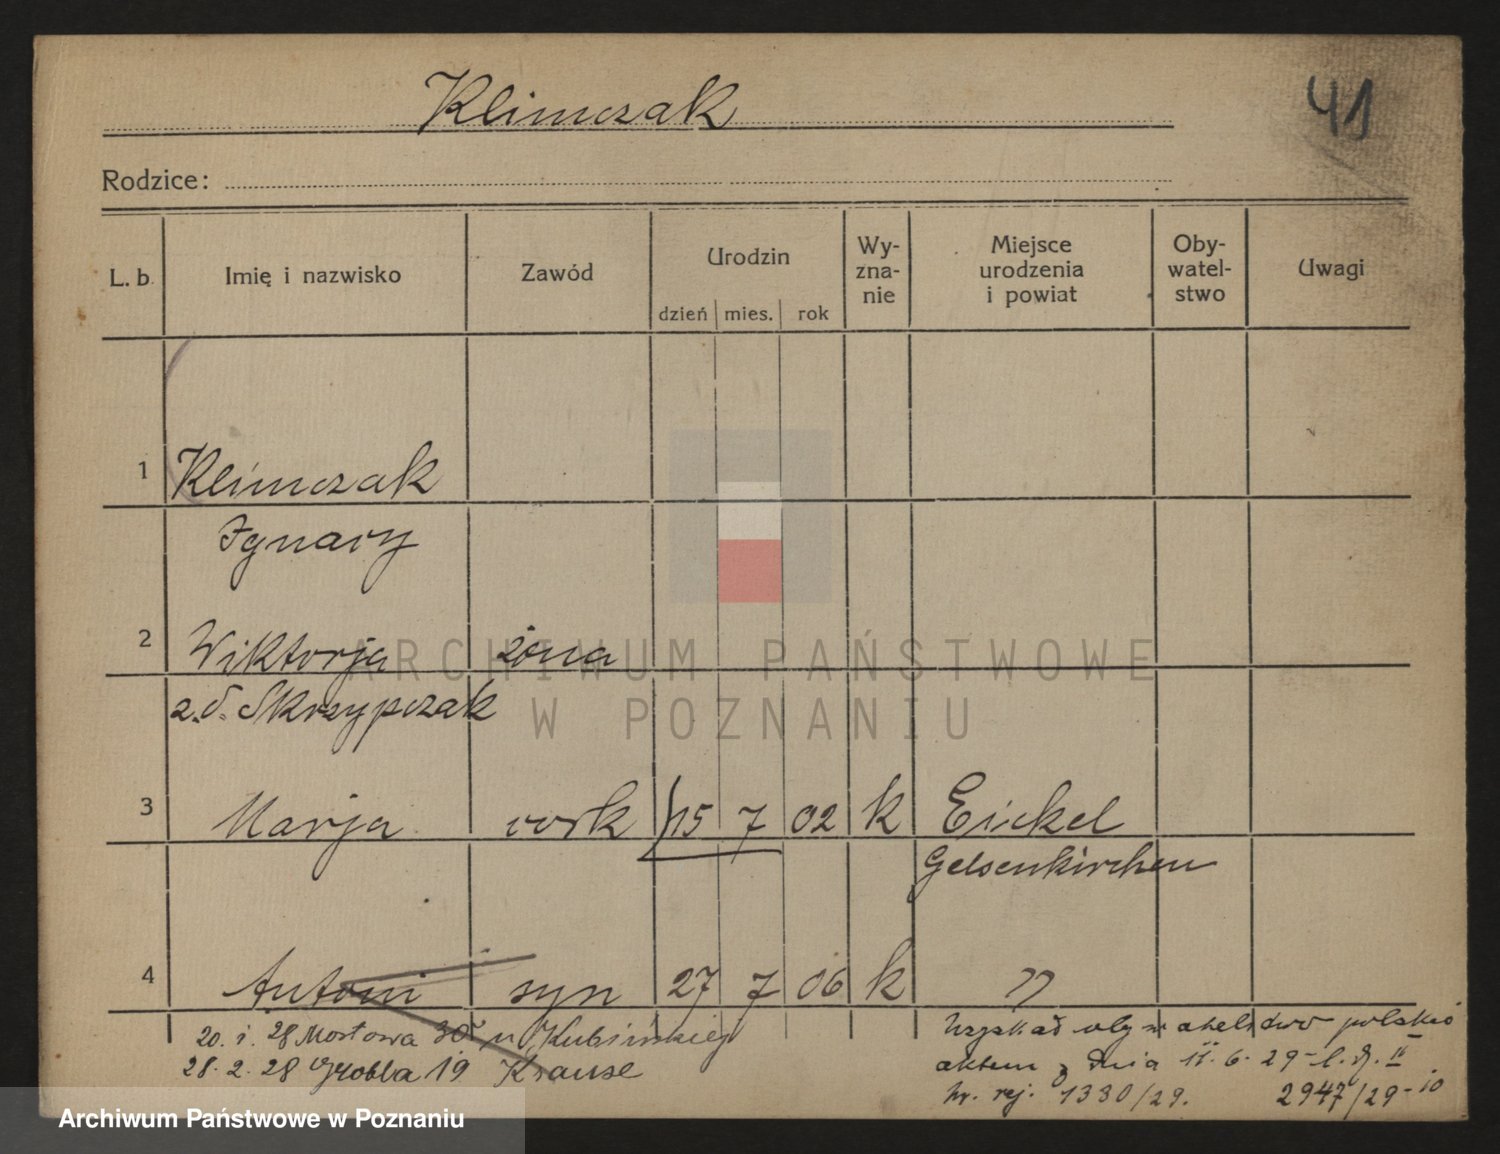 Klimczak
41
Rodzice:
L. b. Imię i nazwisko Zawód Urodzin dzień mies. rok Wy-zna-nie Miejsce urodzenia i powiat Oby-watel-stwo Uwagi
1 Klimczak
Ignacy
2 Wiktorja żona
z.d. Skrzypczak
3 Marja córk 15 7 02 k Eickel
Gelsenkirchen
4 Antoni syn 27 7 06 k "
20. 1. 28 Mostowa u Kubińskiej
28. 2. 28 Grobla 19 Krause
Uzyskał obywatelstwo polskie
aktem z dnia 11. 6. 29 - l. dz. II
nr. rej. 1330/29. 2947/29-10
ARCHIWUM PAŃSTWOWE
W POZNANIU
Archiwum Państwowe w Poznaniu